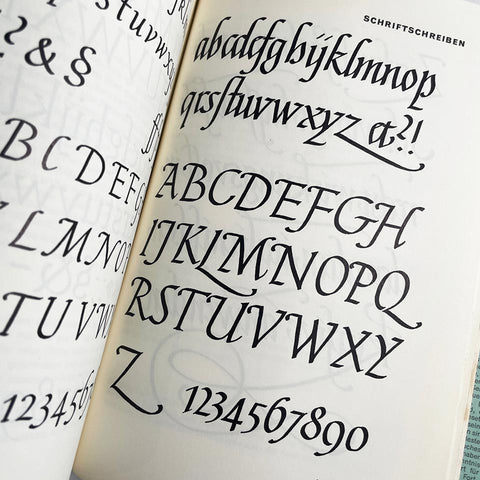 stuvwxy
?!&§
BCDEFG
LMNO
TUVW
1234567
SCHRIFTSCHREIBEN
abcdefghijklmnop
qrsſtuvwxyz &?!
ABCDEFGH
IJKLMNOPQ
RSTUVWXY
Z 1234567890